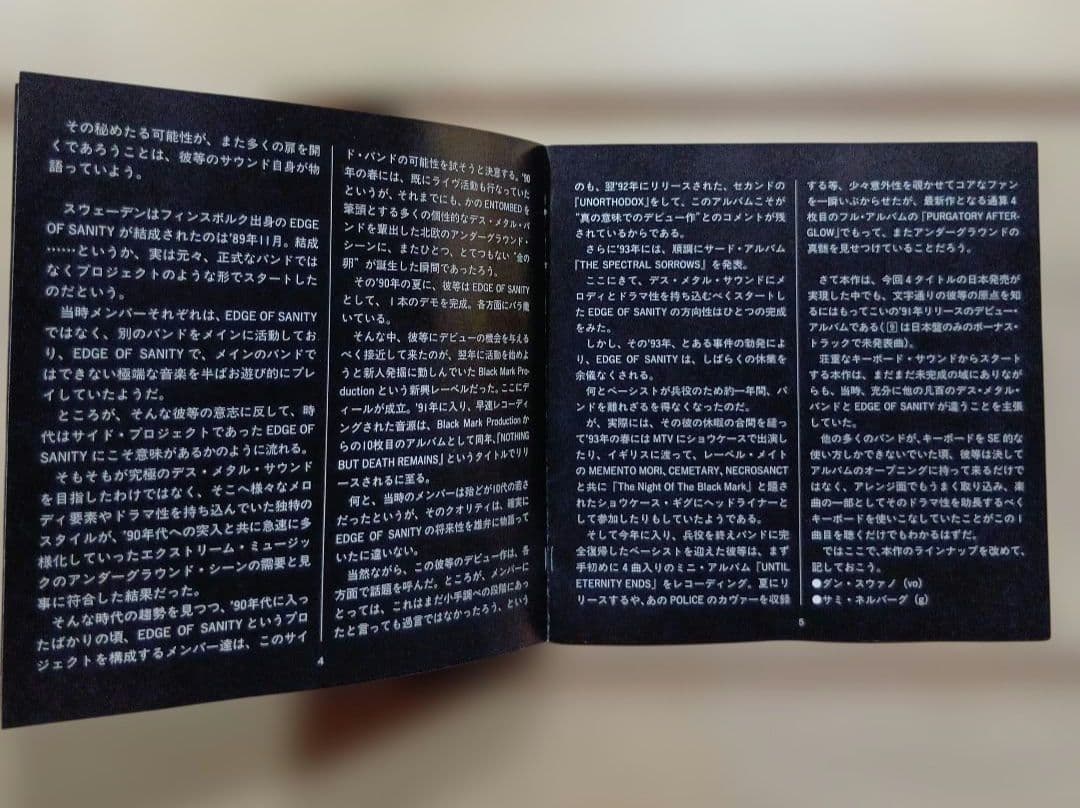 その秘めたる可能性が、また多くの扉を開
くであろうことは、彼等のサウンド自身が物
語っていよう。
スウェーデンはフィンスボルク出身の EDGE
OF SANITY が結成されたのは'89年11月。結成
……というか、実は元々、正式なバンドでは
なくプロジェクトのような形でスタートした
のだという。
当時メンバーそれぞれは、EDGE OF SANITY
ではなく、別のバンドをメインに活動してお
り、EDGE OF SANITY で、メインのバンドで
はできない極端な音楽を半ばお遊び的にプレ
イしていたようだ。
ところが、そんな彼等の意志に反して、時
代はサイド・プロジェクトであった EDGE OF
SANITY にこそ意味があるかのように流れる。
そもそもが究極のデス・メタル・サウンド
を目指したわけではなく、そこへ様々なメロ
ディ要素やドラマ性を持ち込んでいた独特の
スタイルが、'90年代への突入と共に急速に多
様化していったエクストリーム・ミュージッ
クのアンダーグラウンド・シーンの需要と見
事に符合した結果だった。
そんな時代の趨勢を見つつ、'90年代に入っ
たばかりの頃、EDGE OF SANITY というプロ
ジェクトを構成するメンバー達は、このサイ
ド・バンドの可能性を試そうと決意する。'90
年の春には、既にライヴ活動も行なっていた
というが、それまでにも、かの ENTOMBED を
筆頭とする多くの個性的なデス・メタル・バ
ンドを輩出した北欧のアンダーグラウンド・
シーンに、またひとつ、とてつもない“金の
卵”が誕生した瞬間であったろう。
その'90年の夏に、彼等は EDGE OF SANITY
として、1本のデモを完成。各方面にバラ撒
いている。
そんな中、彼等にデビューの機会を与える
べく接近して来たのが、翌年に活動を始めよ
うと新人発掘に勤しんでいた Black Mark Pro-
duction という新興レーベルだった。ここにデ
ィールが成立。'91年に入り、早速レコーディ
ングされた音源は、Black Mark Production か
らの10枚目のアルバムとして同年、「NOTHING
BUT DEATH REMAINS」というタイトルでリリ
ースされるに至る。
何と、当時のメンバーは殆どが10代の若さ
だったというが、そのクオリティは、確実に
EDGE OF SANITY の将来性を雄弁に物語って
いたに違いない。
当然ながら、この彼等のデビュー作は、各
方面で話題を呼んだ。ところが、メンバーに
とっては、これはまだ小手調べの段階にあっ
たと言っても過言ではなかったろう、という
4
のも、翌'92年にリリースされた、セカンドの
「UNORTHODOX」をして、このアルバムこそが
“真の意味でのデビュー作”とのコメントが残
されているからである。
さらに'93年には、順調にサード・アルバム
「THE SPECTRAL SORROWS」を発表。
ここにきて、デス・メタル・サウンドにメ
ロディとドラマ性を持ち込むべくスタートし
た EDGE OF SANITY の方向性はひとつの完成
をみた。
しかし、その'93年、とある事件の勃発によ
り、EDGE OF SANITY は、しばらくの休業を
余儀なくされる。
何とベーシストが兵役のため約一年間、バ
ンドを離れざるを得なくなったのだ。
が、実際には、その彼の休暇の合間を縫っ
て'93年の春には MTV にショウケースで出演し
たり、イギリスに渡って、レーベル・メイト
の MEMENTO MORI, CEMETARY, NECROSANCT
と共に「The Night Of The Black Mark」と題さ
れたショウケース・ギグにヘッドライナーと
して参加したりもしていたようである。
そして今年に入り、兵役を終えバンドに完
全復帰したベーシストを迎えた彼等は、まず
手初めに4曲入りのミニ・アルバム「UNTIL
ETERNITY ENDS」をレコーディング。夏にリ
リースするや、あの POLICE のカヴァーを収録
する等、少々意外性を覗かせてコアなファン
を一瞬いぶからせたが、最新作となる通算4
枚目のフル・アルバムの「PURGATORY AFTER-
GLOW」でもって、またアンダーグラウンドの
真髄を見せつけていることだろう。
さて本作は、今回4タイトルの日本発売が
実現した中でも、文字通りの彼等の原点を知
るにはもってこいの'91年リリースのデビュー・
アルバムである(⑨は日本盤のみのボーナス・
トラックで未発表曲)。
荘重なキーボード・サウンドからスタート
する本作は、まだまだ未完成の域にありなが
らも、当時、充分に他の凡百のデス・メタル・
バンドと EDGE OF SANITY が違うことを主張し
ていた。
他の多くのバンドが、キーボードを SE 的な
使い方しかできないでいた頃、彼等は決して
アルバムのオープニングに持って来るだけで
はなく、アレンジ面でもうまく取り込み、楽
曲の一部としてそのドラマ性を助長するべく
キーボードを使いこなしていたことがこの1
曲目を聴くだけでもわかるはずだ。
ではここで、本作のラインナップを改めて、
記しておこう。
●ダン・スウァノ(vo)
●サミ・ネルバーグ(g)
5